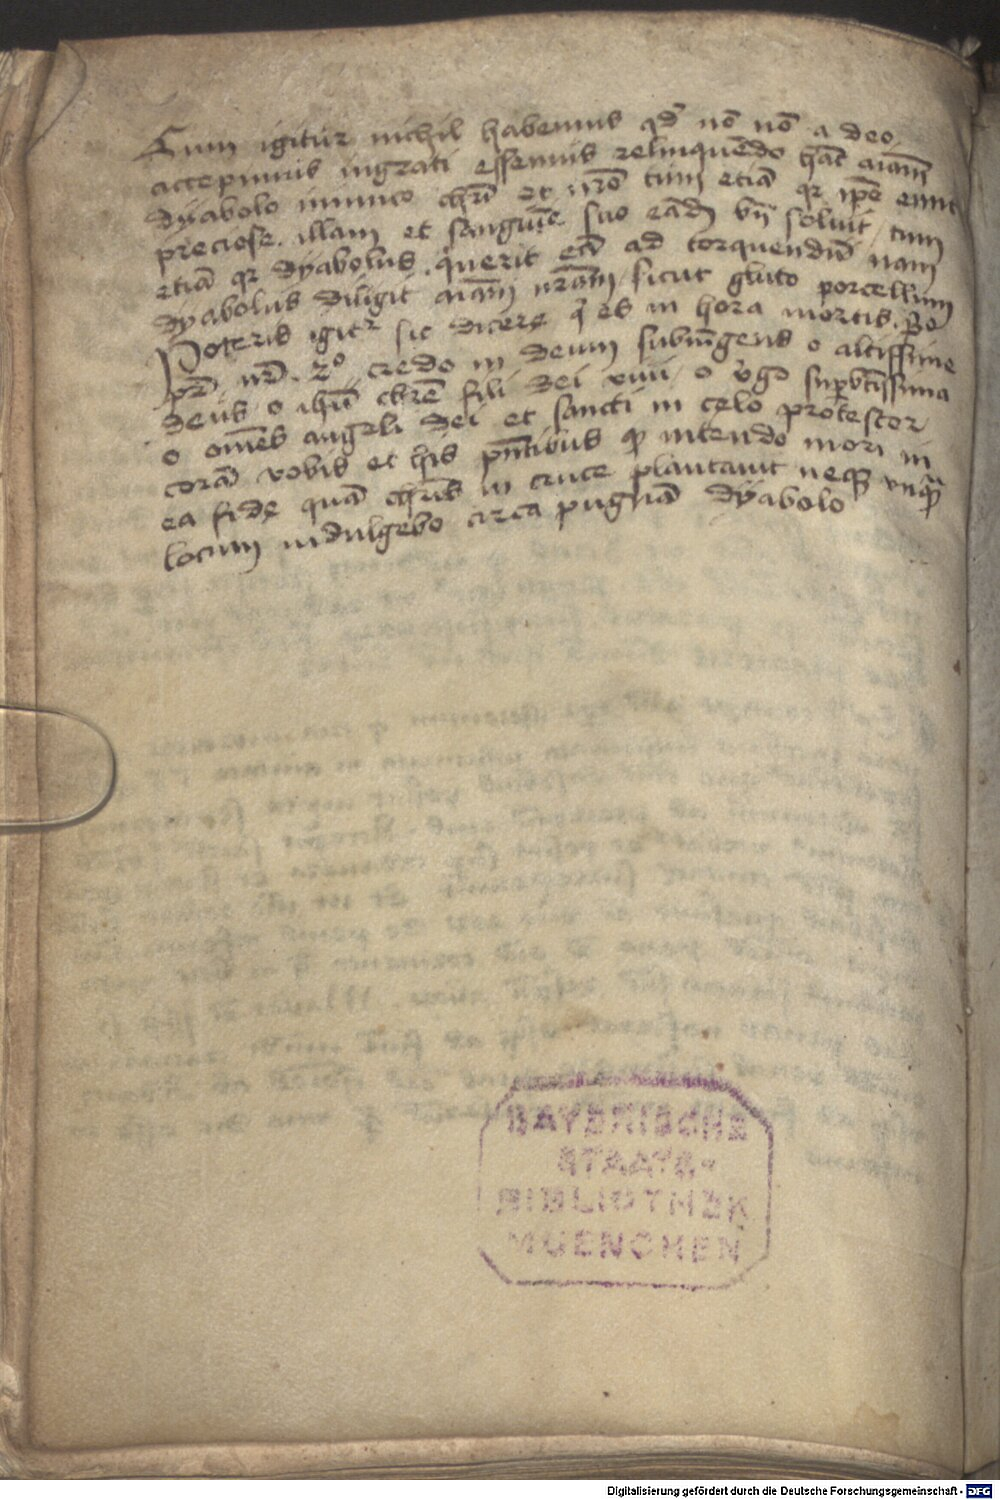 Cum igitur nichil habemus qd̄ nō nō a deo
accepimus ingrati essemus relinquēdo hāc aīam
dyabolo inimico chrī et nrō tum etiā qr ipē emit
preciose illam et sanguīe suo eādē bn̄ soluit / tum
etiā qr dyabolus querit eā ad torquendū nam
dyabolus diligit aīam nrām / sicut gluto porcellum
Poteris igitr sic dicere qn̄ es in hora mortis. p̄o
pr̄ nr̄. 2o credo in deum subiūgens o altissime
deus o ihū chrē fili dei viui / o v̄go superbn̄dissima
o om̄es angeli dei et sancti in celo protestor
corā vobis et his pn̄tibus qr intendo mori in
ea fide quā chrūs in cruce plantauit neqꝫ vnqā
locum indulgebo circa pugnā dyabolo
BAYERISCHE
STAATS-
BIBLIOTHEK
MUENCHEN
Digitalisierung gefördert durch die Deutsche Forschungsgemeinschaft - DFG